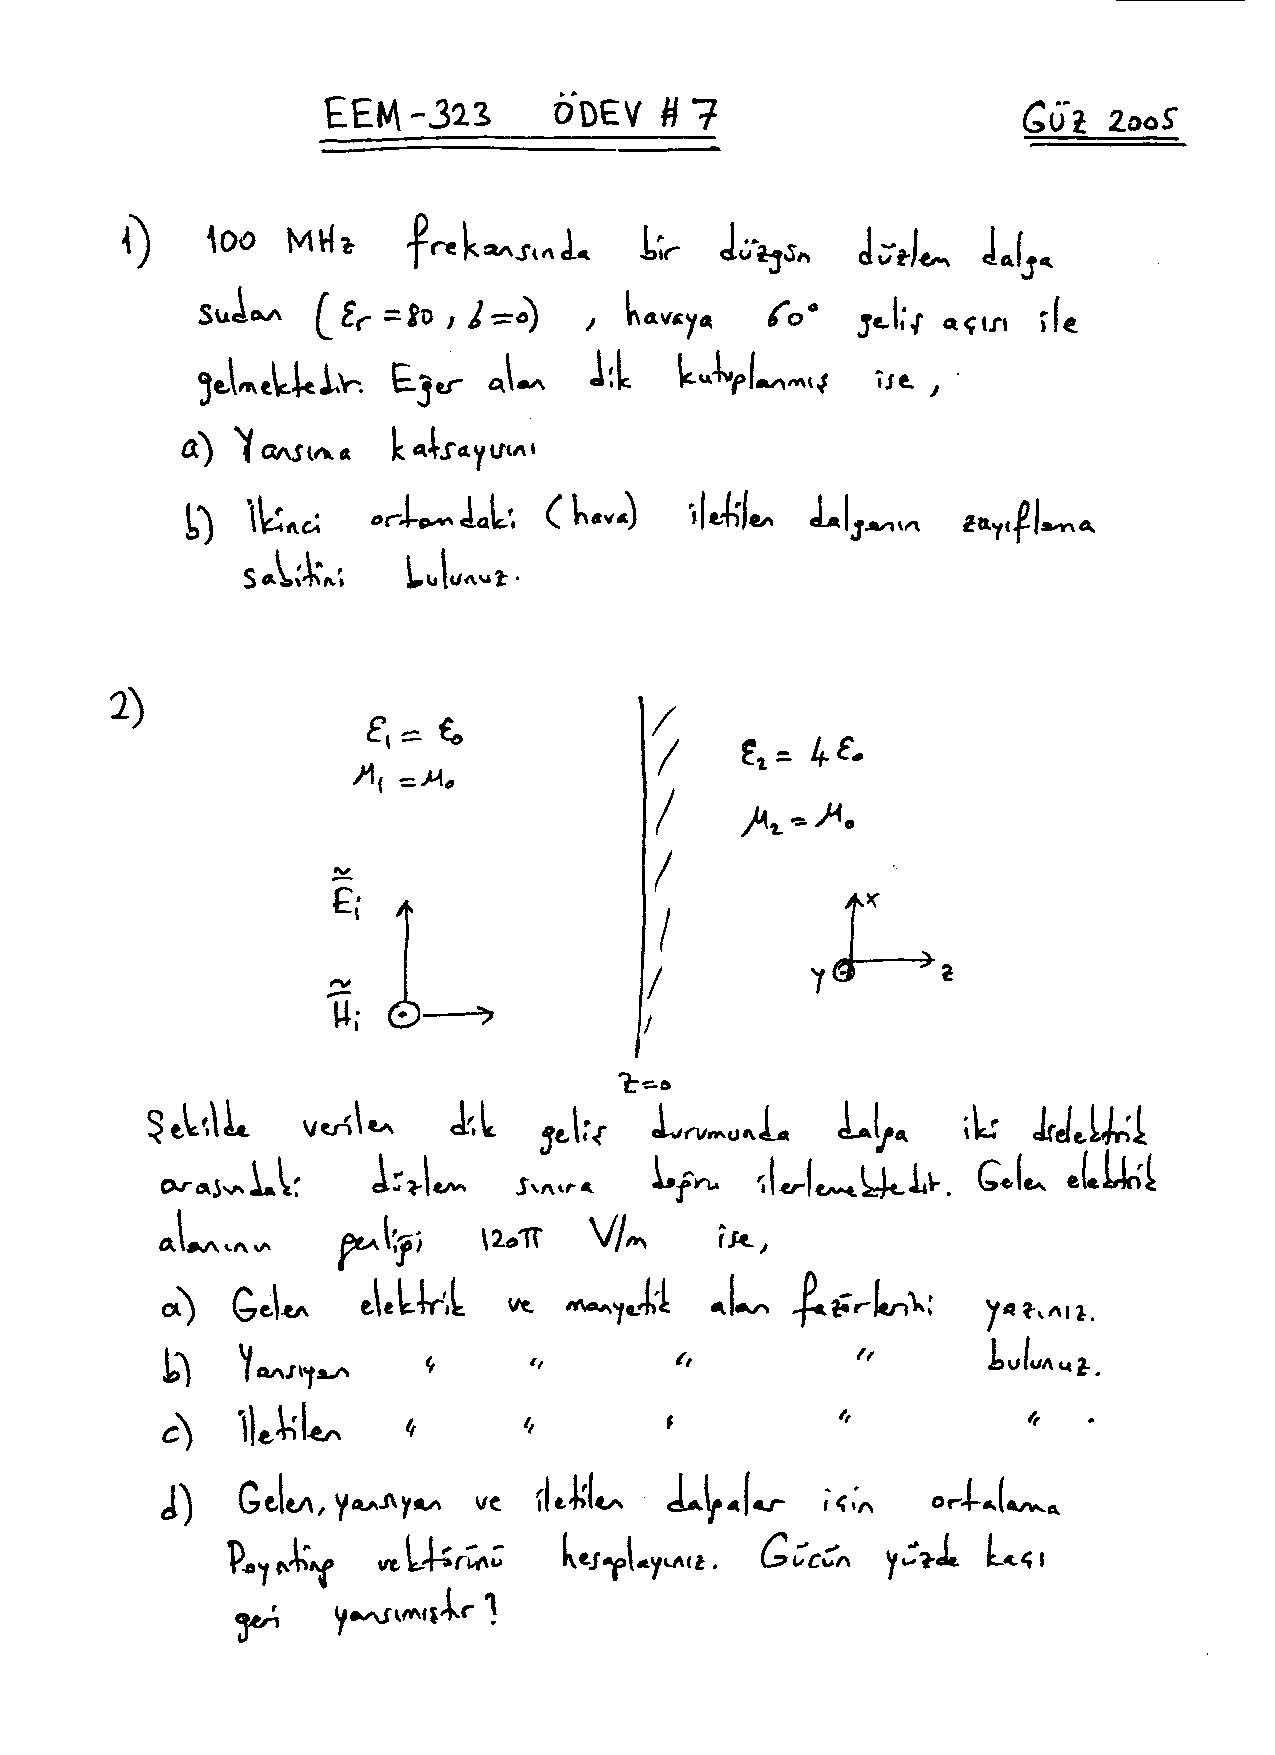 EEM-323 ÖDEV #7 GÜZ 2005
1) 100 MHz frekansında bir düzgün düzlem dalga
sudan (εr =80, σ=0), havaya 60° geliş açısı ile
gelmektedir. Eğer alan dik kutuplanmış ise,
a) Yansıma katsayısını
b) İkinci ortamdaki (hava) iletilen dalganın zayıflama
sabitini bulunuz.
2)
ε1 = ε0
μ1 = μ0
ε2 = 4ε0
μ2 = μ0
Ei
Hi
x
y
z
z=0
Şekilde verilen dik geliş durumunda dalga iki dielektrik
arasındaki düzlem sınıra doğru ilerlemektedir. Gelen elektrik
alanının genliği 120π V/m ise,
a) Gelen elektrik ve manyetik alan fazörlerini yazınız.
b) Yansıyan " " " " bulunuz.
c) İletilen " " " " " .
d) Gelen, yansıyan ve iletilen dalgalar için ortalama
Poynting vektörünü hesaplayınız. Gücün yüzde kaçı
geri yansımıştır?